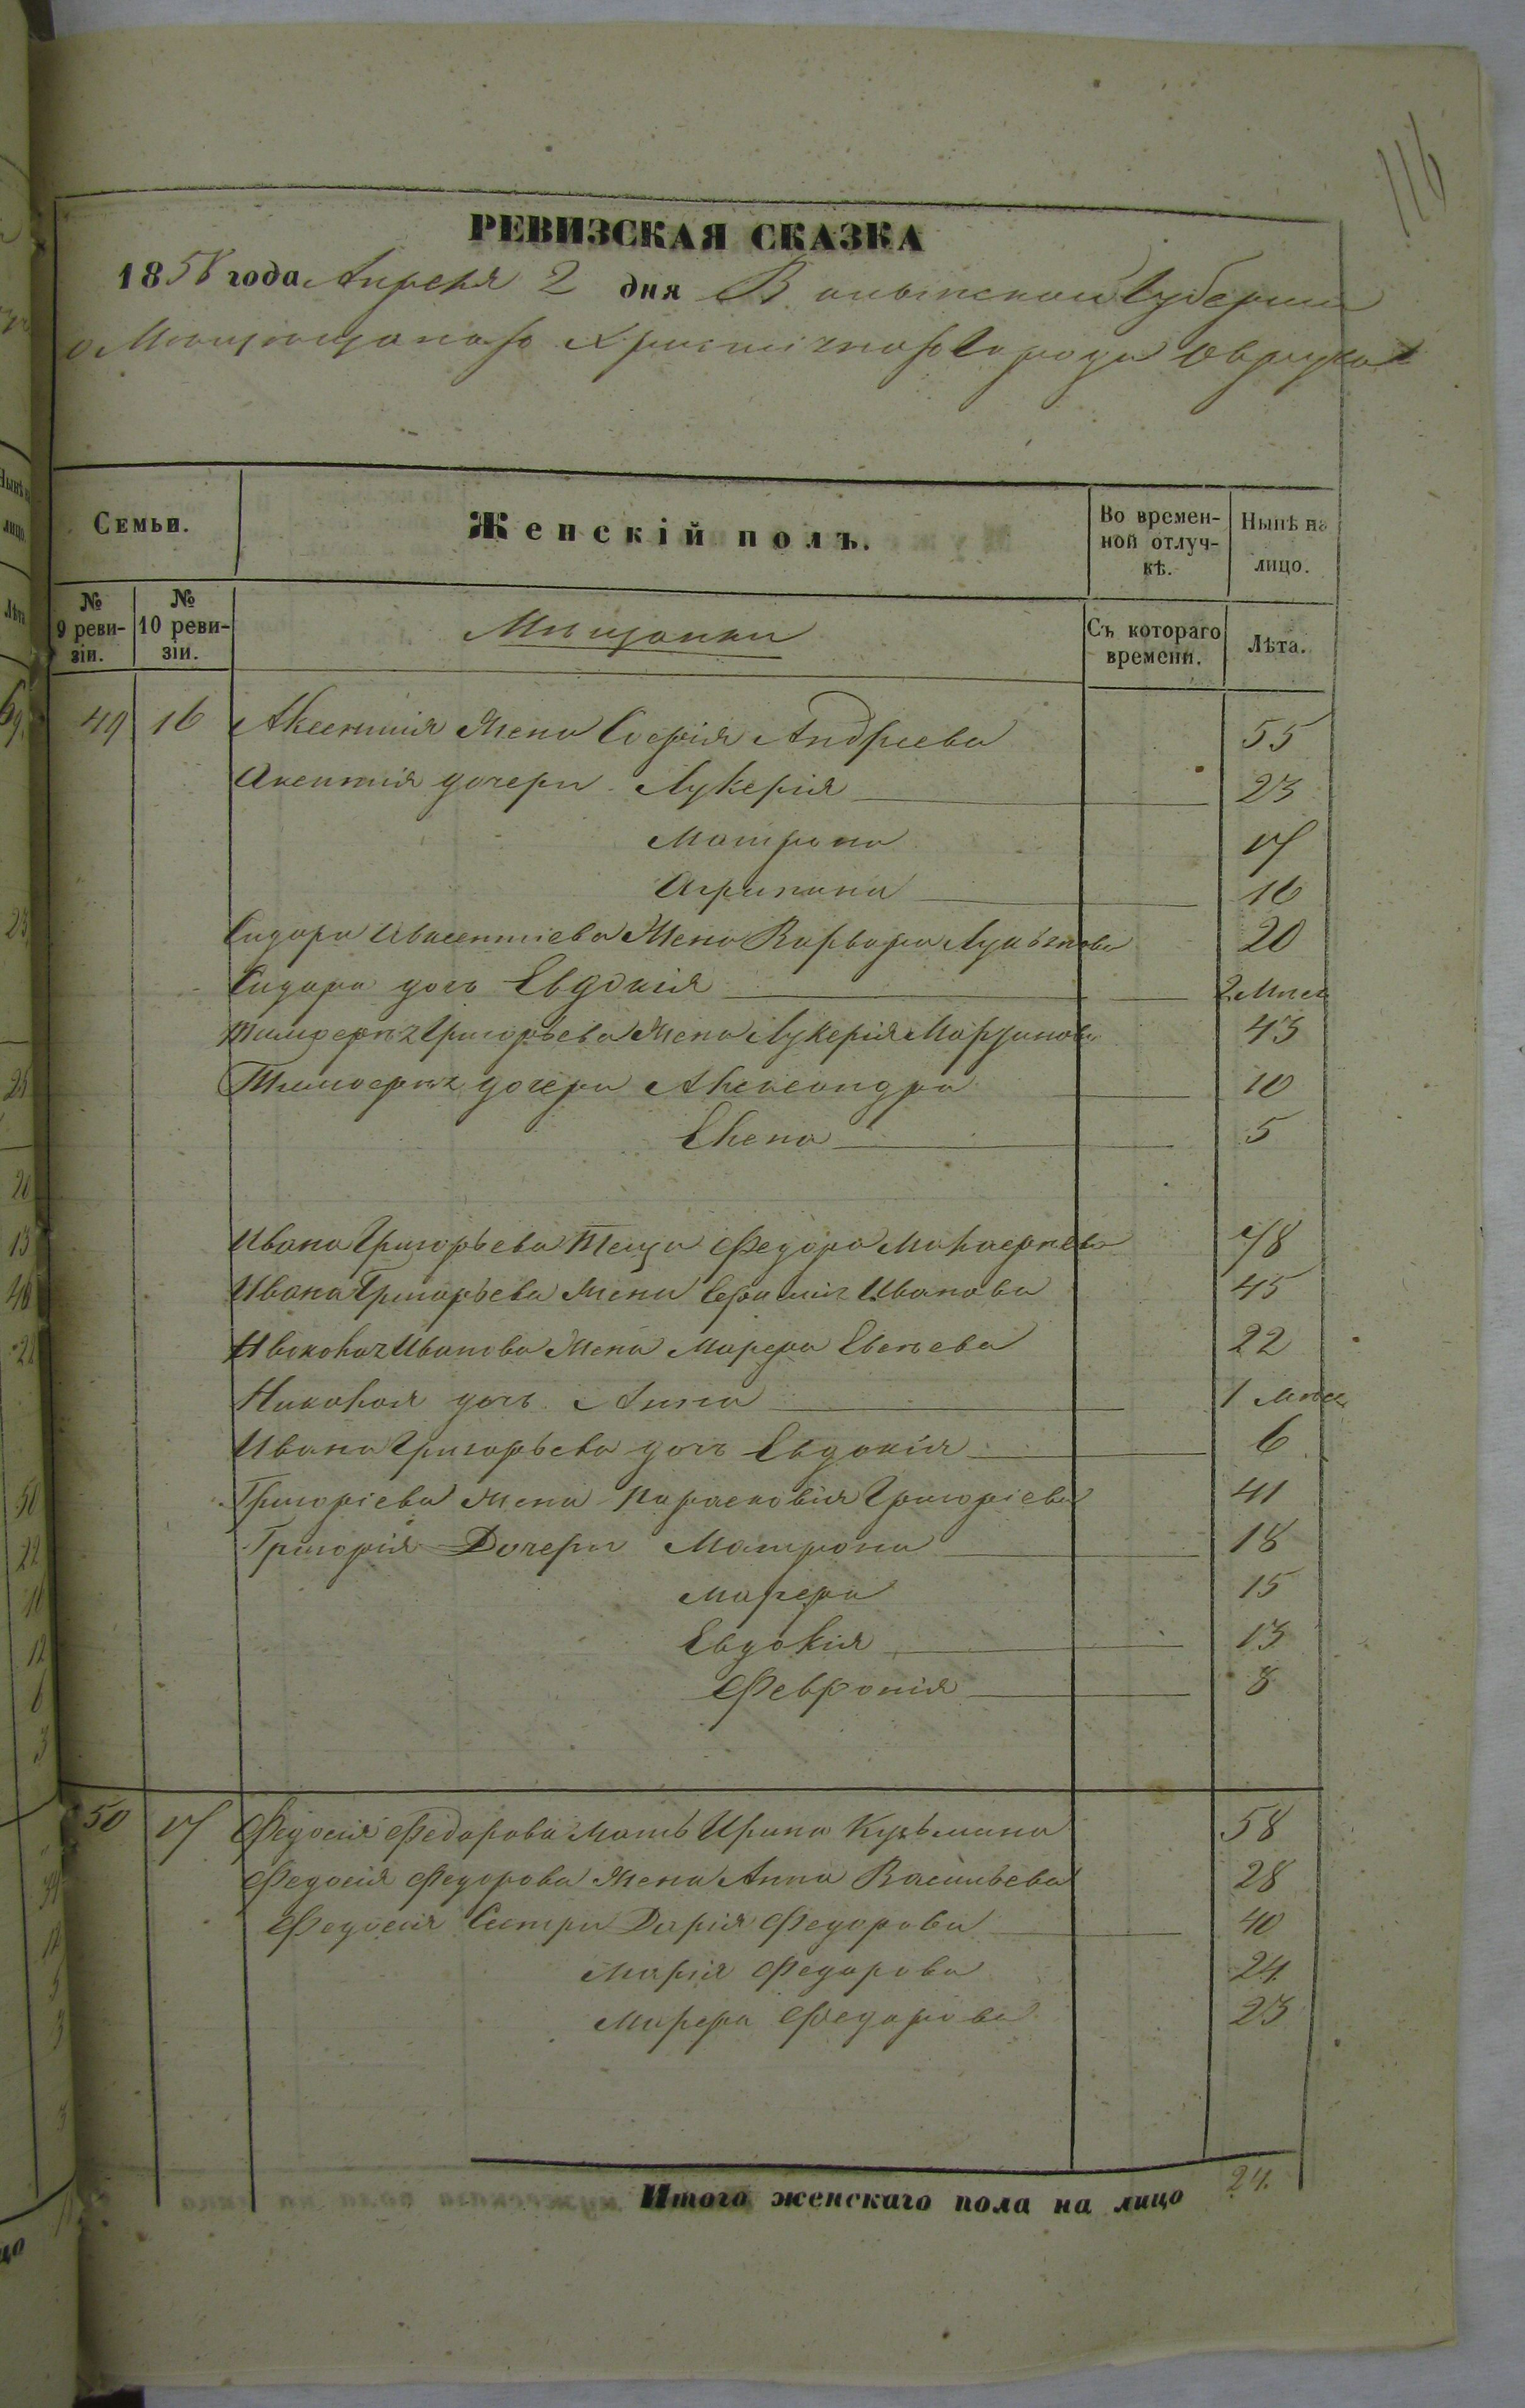 116
РЕВИЗСКАЯ СКАЗКА
1858 года Апреля 2 дня Волынской Губернии
о Мещанахъ Города Овруча
Семьи. Женскій полъ. Во времен- Нынѣ на
ной отлуч- лицо.
кѣ.
№ № Мещанки Съ котораго Лѣта.
9 реви- 10 реви- времени.
зіи. зіи.
49 16 Аксентия Жена Софія Андреева 55
Аксентия дочери Лукерія 23
Матрона 17
Агрипина 16
Сидора Авксентіева Жена Варвара 20
Сидора дочь Евдокія 2 Мнсц
Тимофея Григорьева Жена Лукерія 43
Тимофея дочери Александра 10
Елена 5
Ивана Григорьева Теща Федора 78
Ивана Григорьева Жена Иванова 45
Николая Иванова Жена Марфа 22
Николая дочь Анна 1 Мнсц
Ивана Григорьева дочь Евдокія 6
Григоріева Жена Парасковія Григоріева 41
Григорія Дочери Матрона 18
Марфа 15
Евдокія 13
Февронія 8
50 17 Федосія Федорова Мать Ирина Кузьмина 58
Федосія Федорова Жена Анна Васильева 28
Федосія Сестры Дарія Федорова 40
Марія Федорова 24
Марфа Федорова 23
Итого женскаго пола на лицо 24.